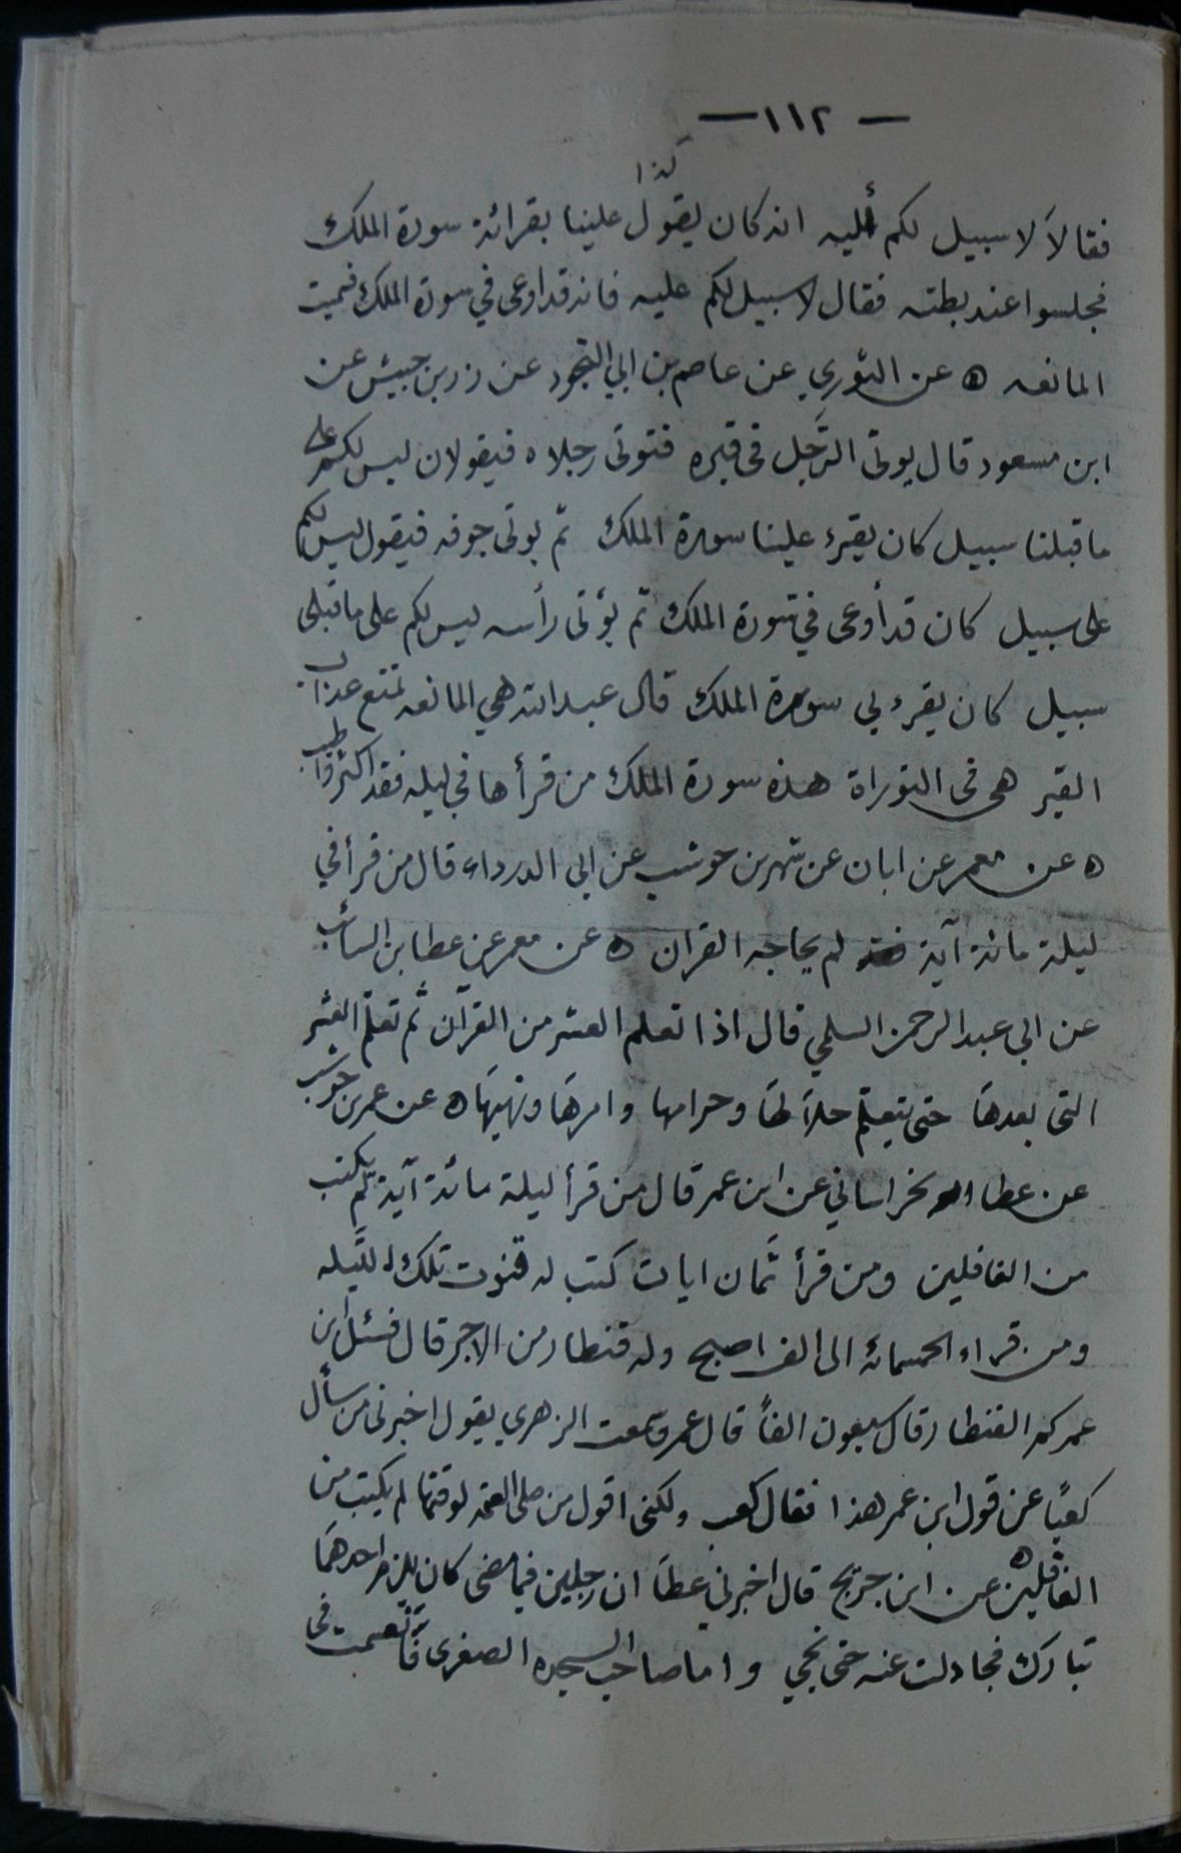 — ١١٢ —
كذا
فقالا لا سبيل لكم أليه انه كان يقول علينا بقرائة سورة الملك
فجلسوا عند بطنه فقال لا سبيل لكم عليه فانه قد اوعى في سورة الملك فسميت
المانعه ه عن الثوري عن عاصم بن ابي النجود عن زر بن حبيش عن
ابن مسعود قال يوتى الرَّجل فى قبره فتوتى رجلاه فيقولان ليس لكم على
ما قبلنا سبيل كان يقرء علينا سورة الملك ثم يوتى جوفه فيقول ليس لكم
على سبيل كان قد أوعى في سورة الملك ثم يؤتى رأسه ليس لكم على ما قبلى
سبيل كان يقرء بي سورة الملك قال عبد الله هي المانعه تمنع عذاب
القبر هى فى التوراة هذه سورة الملك من قرأها في ليله فقد اكثر واطيب
ه عن معمر عن ابان عن شهر بن حوشب عن ابي الدرداء قال من قرأ في
ليلة مائة آية لم يحاجه القران ه عن معمر عن عطا بن السائب
عن ابي عبد الرحمن السلمي قال اذا تعلم العشر من القرآن ثم تعلم العشر
التى بعدها حتى يتعلّم حلالها وحرامها وامرها ونهيها ه عن عمر بن حوشب
عن عطا الخراساني عن ابن عمر قال من قرأ ليلة مائة آية لم يكتب
من الغافلين ومن قرأ ثمان ايات كتب له قنوت تلك الليله
ومن قراء الخمسمائه الى الف اصبح وله قنطار من الاجر قال فسئل ابن
عمر كم القنطار قال سبعون الفاً قال عمر وسمعت الزهري يقول اخبرنى من سأل
كعبًا عن قول ابن عمر هذا فقال كعب ولكنى اقول من صلى العتمه لوقتها لم يكتب من
الغافلين ه عن ابن جريج قال اخبرني عطا ان رجلين فيما مضى كان يلزم احدهما
تبارك فجادلت عنه حتى نجي واما صاحب السجده الصغرى فأنقسمت فى